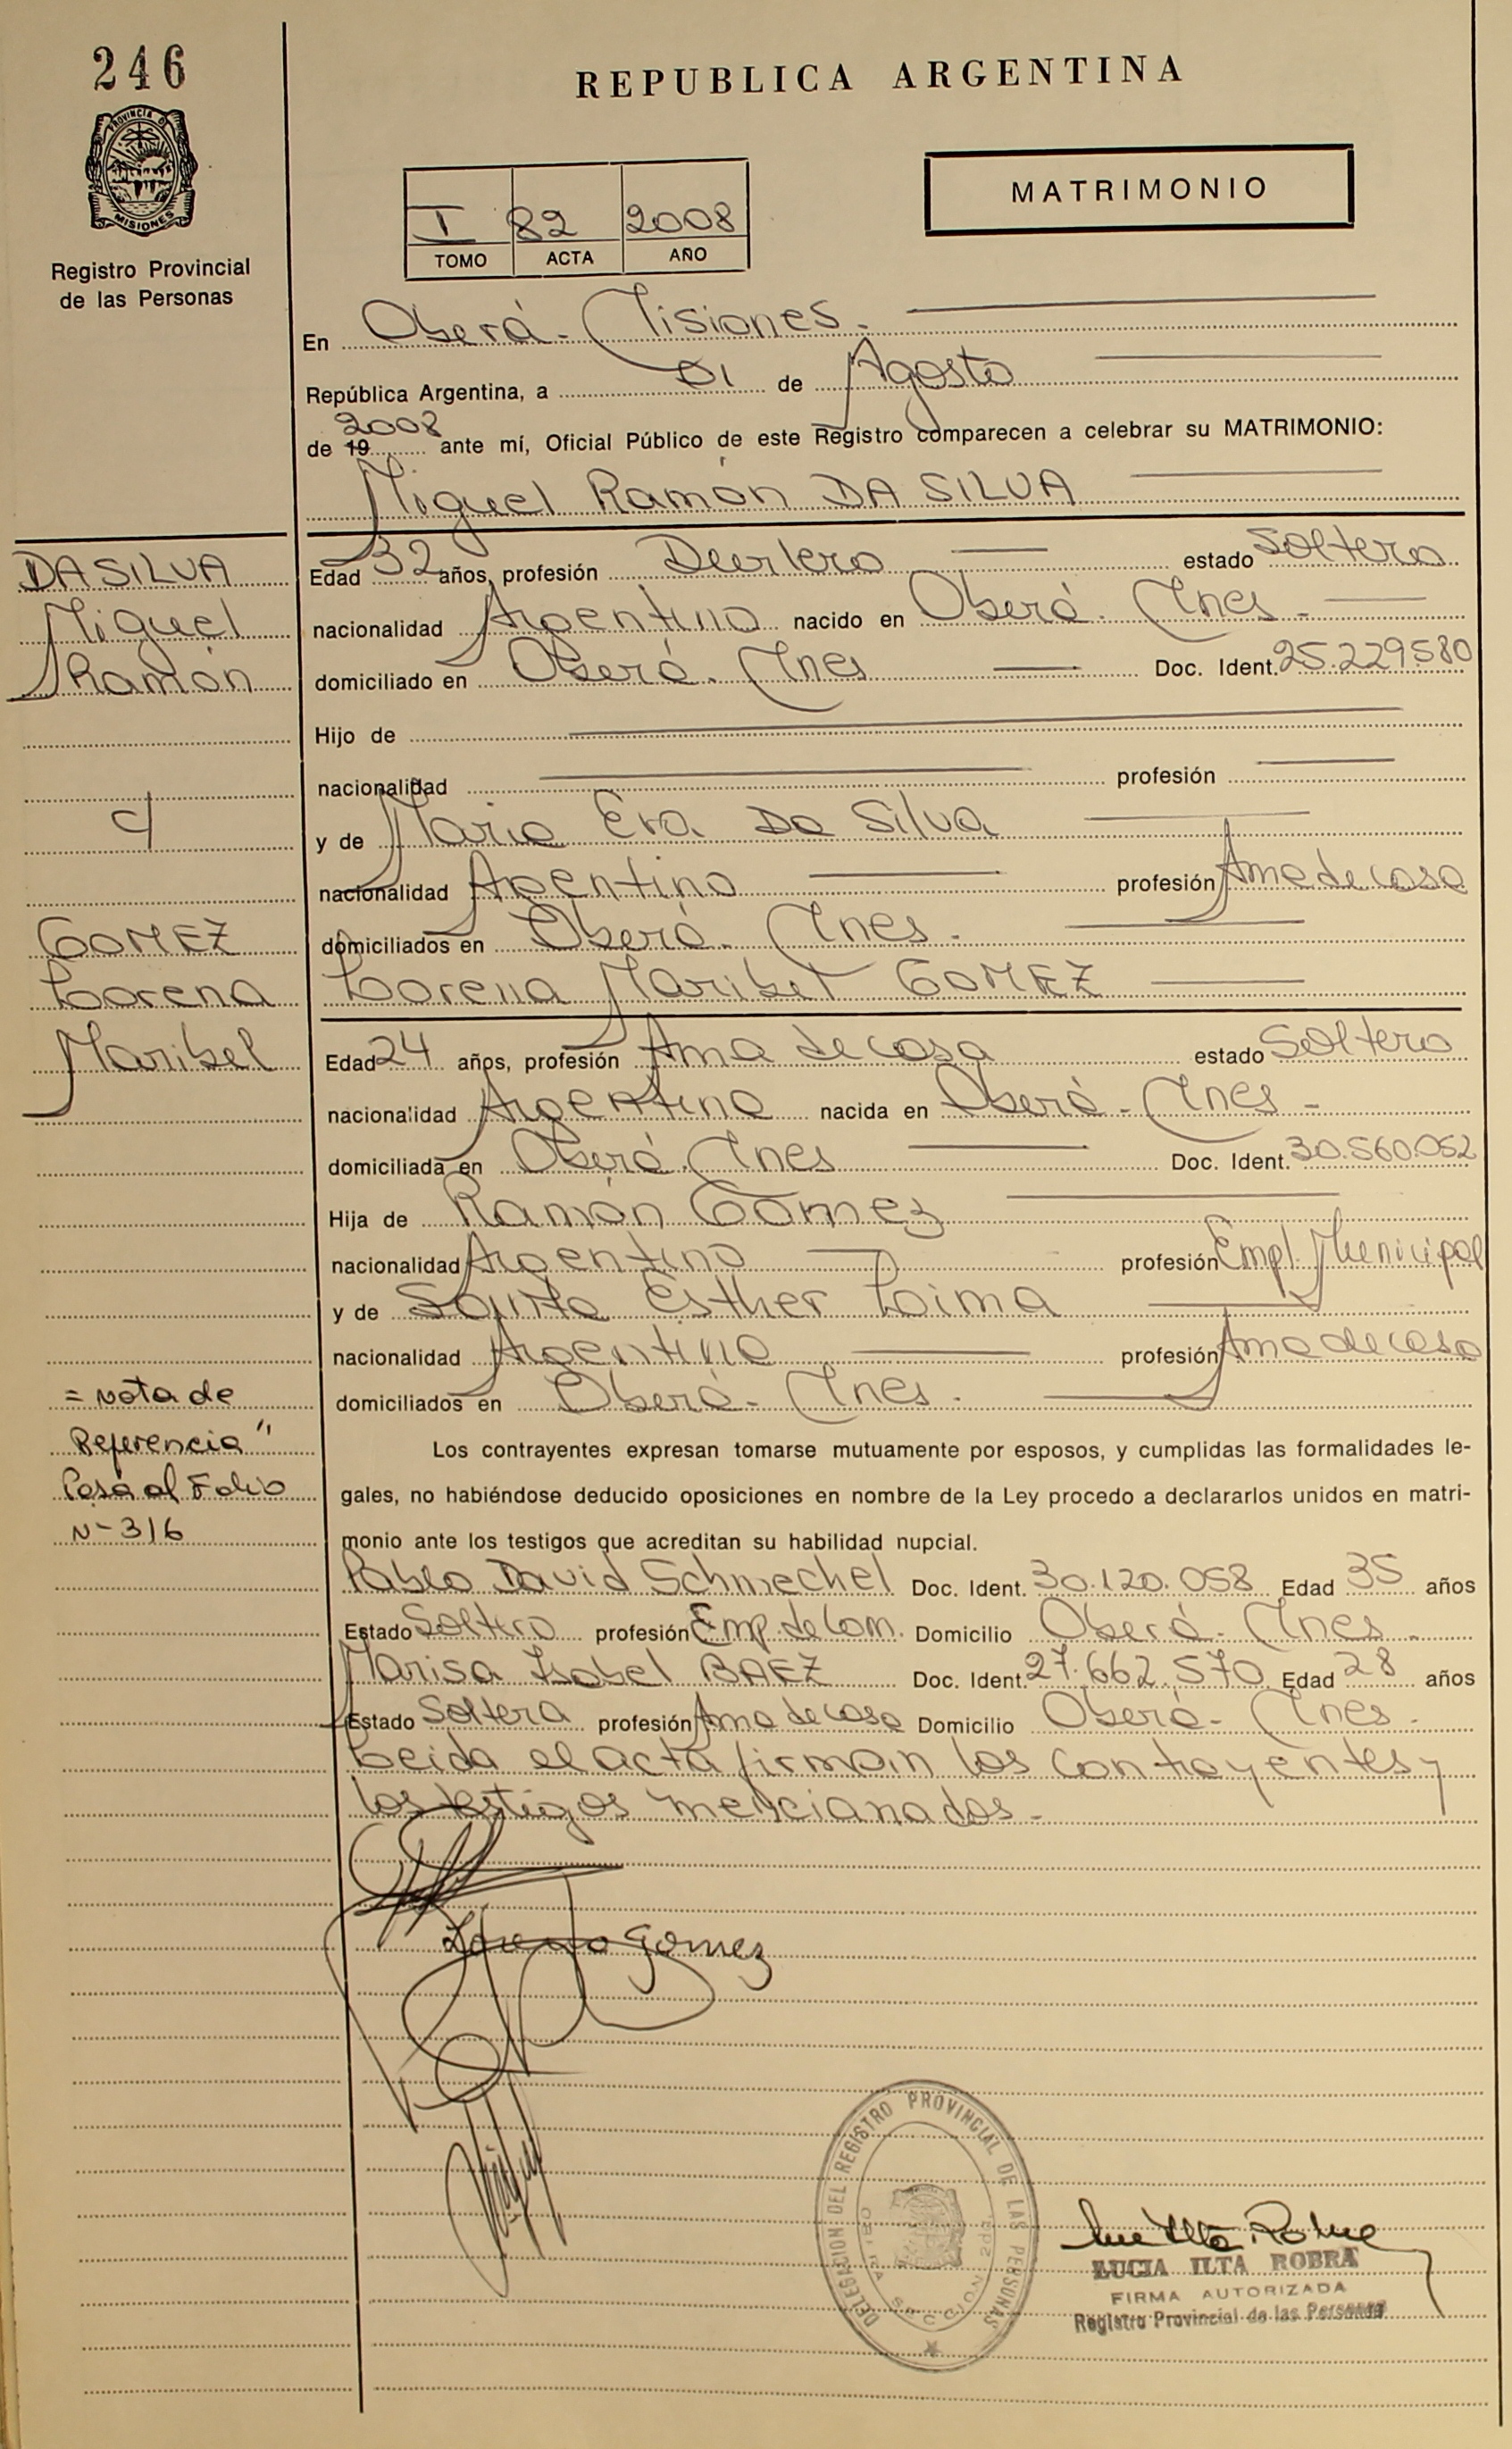 246
PROVINCIA DE
MISIONES
Registro Provincial
de las Personas
REPUBLICA ARGENTINA
MATRIMONIO
I 82 2008
TOMO ACTA AÑO
En Oberá - Misiones.
República Argentina, a 01 de Agosto
de 19 2008 ante mí, Oficial Público de este Registro comparecen a celebrar su MATRIMONIO:
Miguel Ramón DA SILVA
DA SILVA
Miguel
Ramón
c/
GOMEZ
Lorena
Maribel
Edad 32 años, profesión estado Soltero
nacionalidad Argentino nacido en Oberá. Mnes.
domiciliado en Oberá. Mnes Doc. Ident. 25.229580
Hijo de
nacionalidad profesión
y de Maria Eva Da Silva
nacionalidad Argentina profesión Ama de casa
domiciliados en Oberá. Mnes.
Lorena Maribel GOMEZ
Edad 24 años, profesión Ama de casa estado Soltera
nacionalidad Argentina nacida en Oberá - Mnes -
domiciliada en Oberá. Mnes Doc. Ident. 30.560.052
Hija de Ramón Gomez
nacionalidad Argentino profesión Empl. Municipal
y de Esther
nacionalidad Argentina profesión Ama de casa
domiciliados en Oberá - Mnes.
= Nota de
Referencia "
Pasa al Folio
N- 316
Los contrayentes expresan tomarse mutuamente por esposos, y cumplidas las formalidades le-
gales, no habiéndose deducido oposiciones en nombre de la Ley procedo a declararlos unidos en matri-
monio ante los testigos que acreditan su habilidad nupcial.
Pablo David Schmechel Doc. Ident. 30.120.058 Edad 35 años
Estado Soltero profesión Emp. de Com. Domicilio Oberá - Mnes.
Marisa Isabel BAEZ Doc. Ident. 27.662.570 Edad 28 años
Estado Soltera profesión Ama de casa Domicilio Oberá - Mnes.
Leida el acta firman los contrayentes y
los testigos mencionados -
Lorena Gomez
DELEGACION DEL REGISTRO PROVINCIAL DE LAS PERSONAS
LUCIA ILTA ROBRA
FIRMA AUTORIZADA
Registro Provincial de las Personas